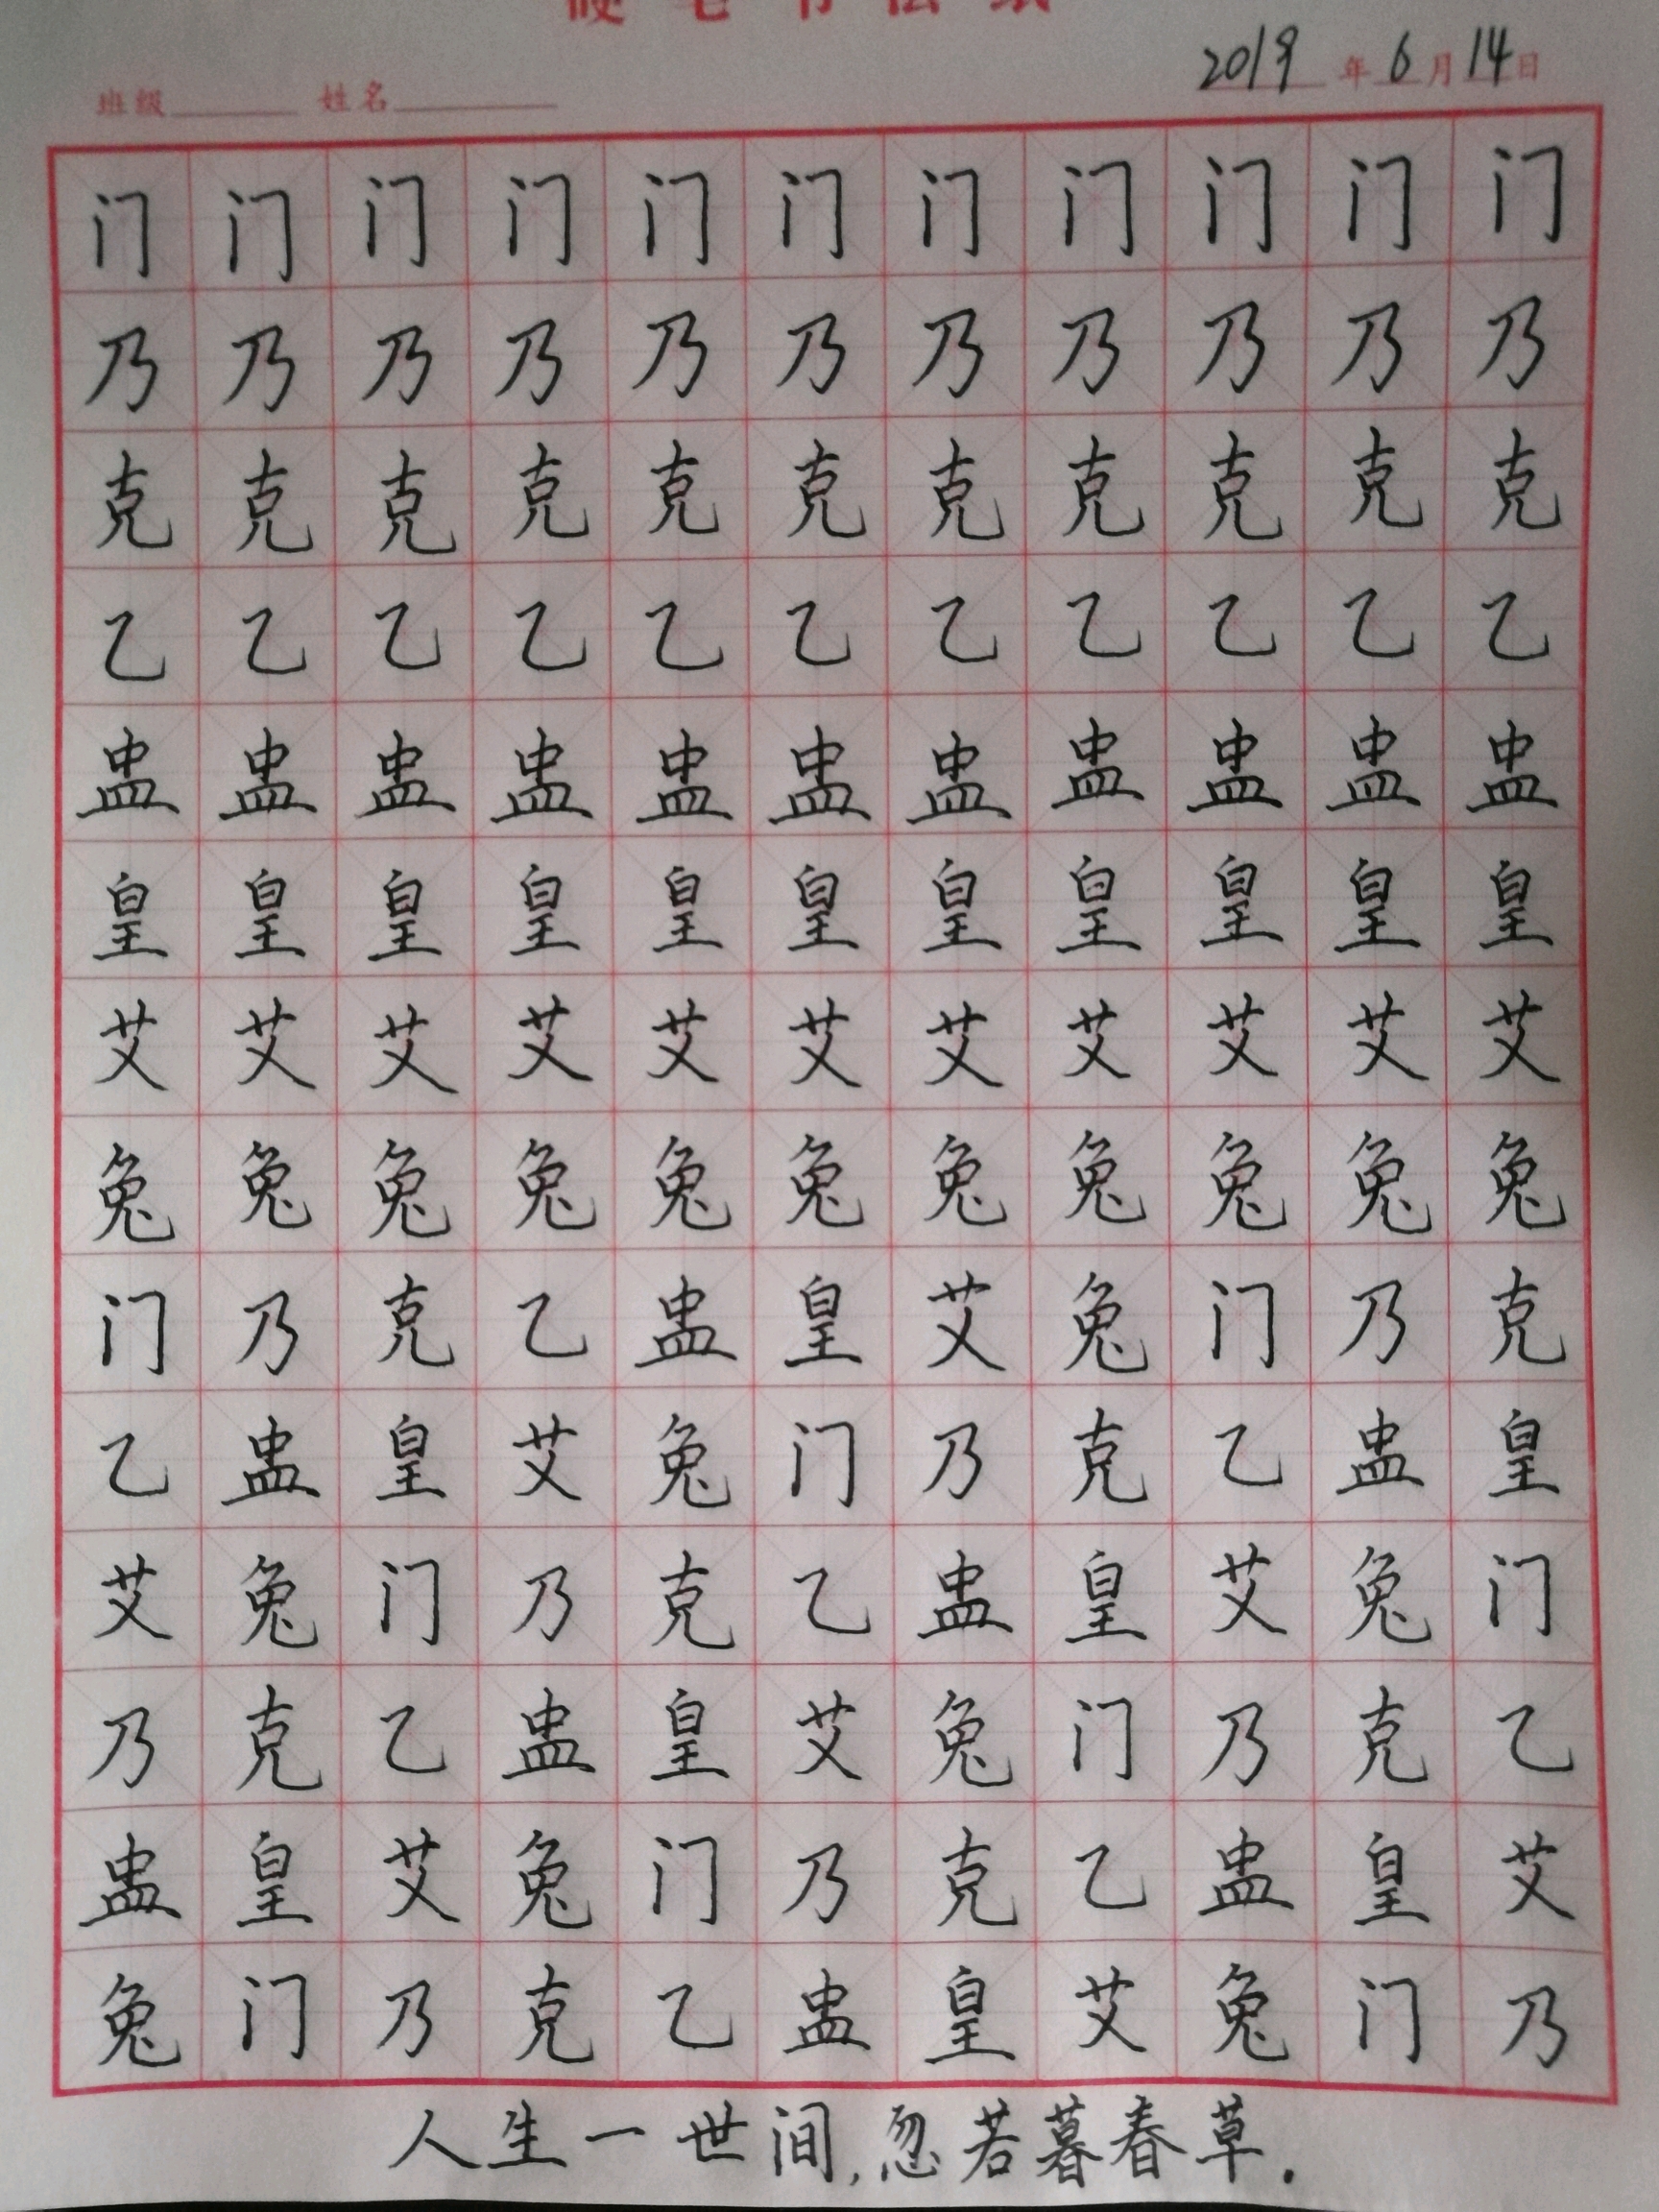 硬笔书法纸
2019年6月14日
班级 姓名
门门门门门门门门门门门
乃乃乃乃乃乃乃乃乃乃乃
克克克克克克克克克克克
乙乙乙乙乙乙乙乙乙乙乙
盅盅盅盅盅盅盅盅盅盅盅
皇皇皇皇皇皇皇皇皇皇皇
艾艾艾艾艾艾艾艾艾艾艾
兔兔兔兔兔兔兔兔兔兔兔
门乃克乙盅皇艾兔门乃克
乙盅皇艾兔门乃克乙盅皇
艾兔门乃克乙盅皇艾兔门
乃克乙盅皇艾兔门乃克乙
盅皇艾兔门乃克乙盅皇艾
兔门乃克乙盅皇艾兔门乃
人生一世间,忽若暮春草.